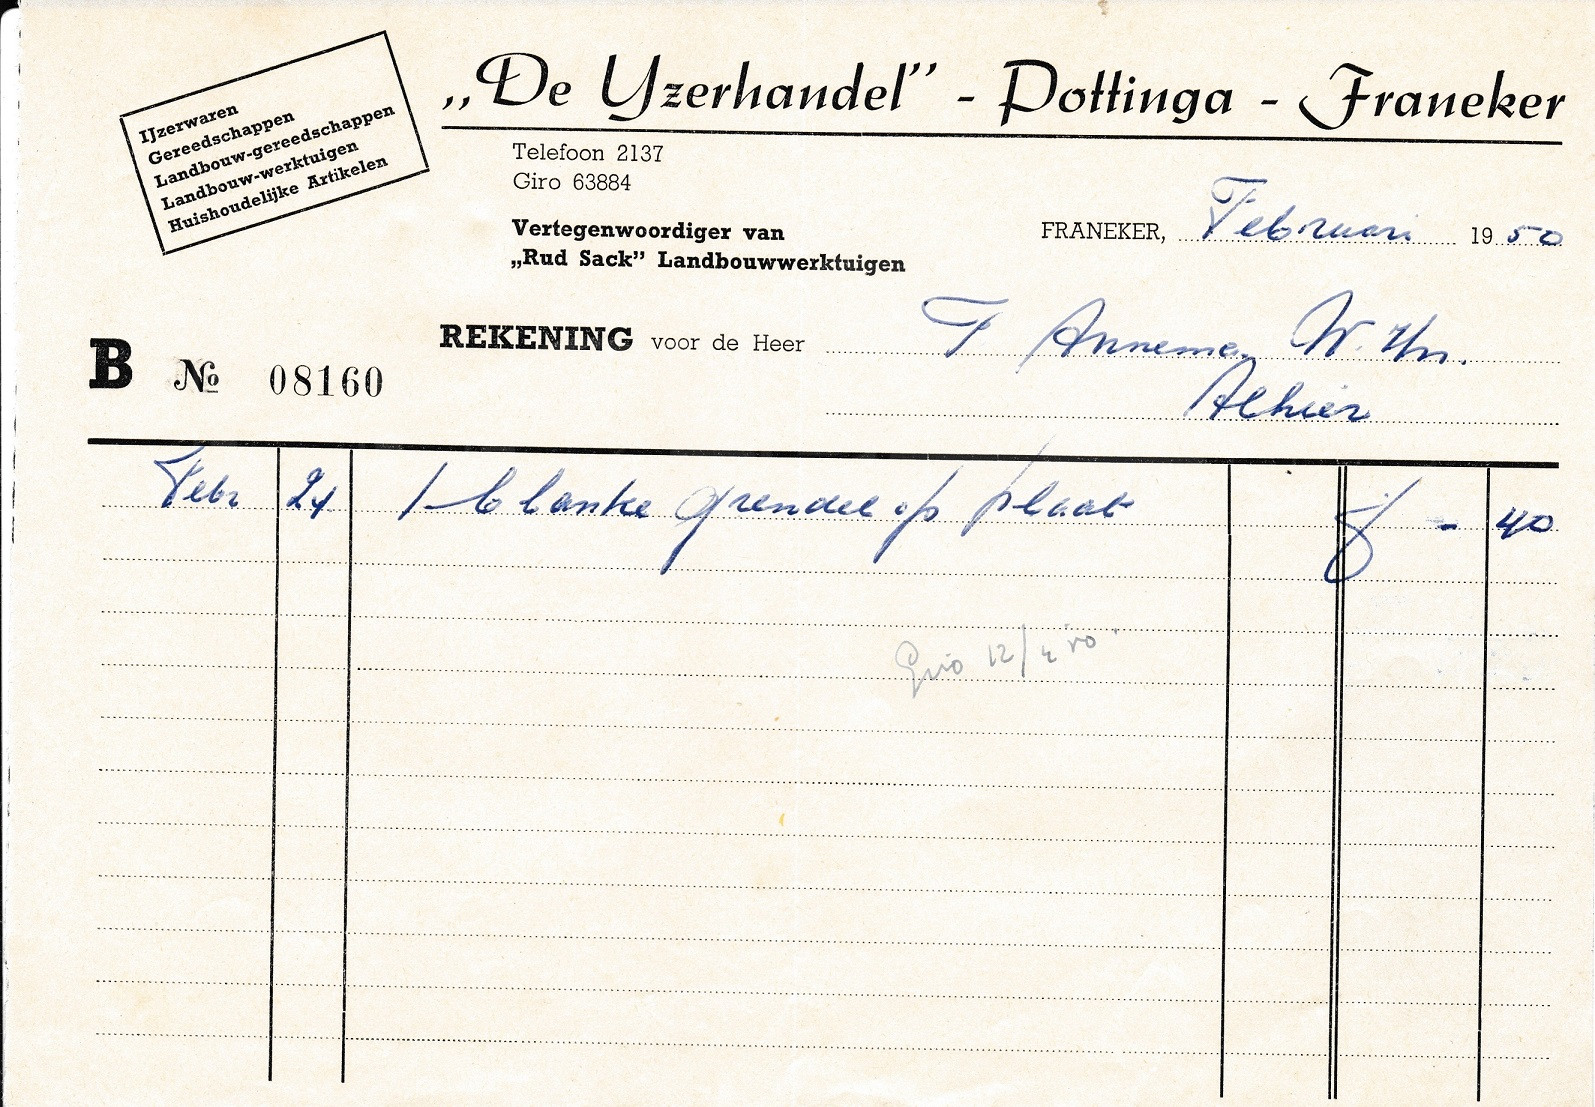 IJzerwaren
Gereedschappen
Landbouw-gereedschappen
Landbouw-werktuigen
Huishoudelijke Artikelen
„De Yzerhandel” - Pottinga - Franeker
Telefoon 2137
Giro 63884
Vertegenwoordiger van
„Rud Sack” Landbouwwerktuigen
FRANEKER, Februari 19 50
REKENING voor de Heer T Annema.
Alhier
B No 08160
Febr 24 1 blanke grendel op plaat f - 40
Giro 12/4 '50